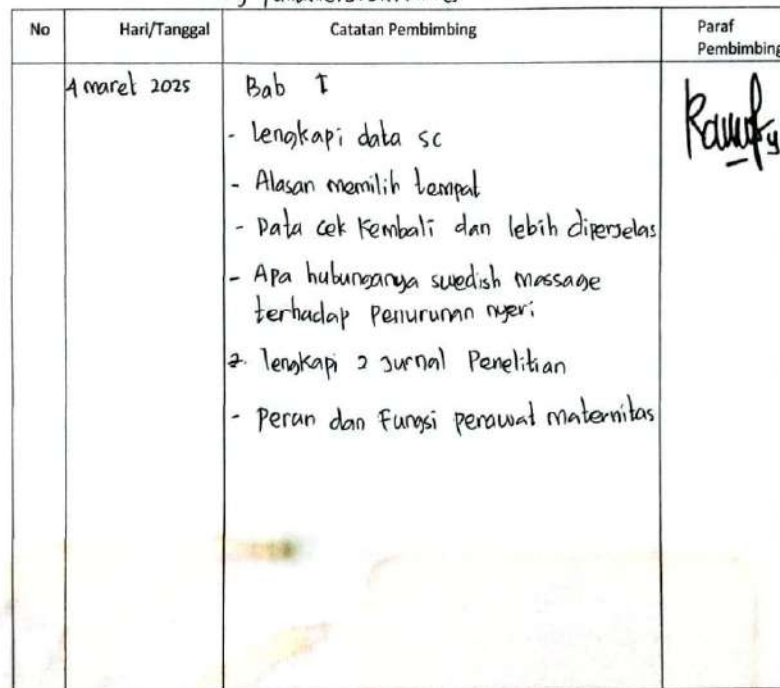 No Hari/Tanggal Catatan Pembimbing Paraf
Pembimbing
4 maret 2025 Bab I
- lengkapi data sc
- Alasan memilih tempat
- Data cek kembali dan lebih diperjelas
- Apa hubunganya swedish massage
terhadap Penurunan nyeri
2. lengkapi 2 Jurnal Penelitian
- Peran dan Fungsi perawat maternitas